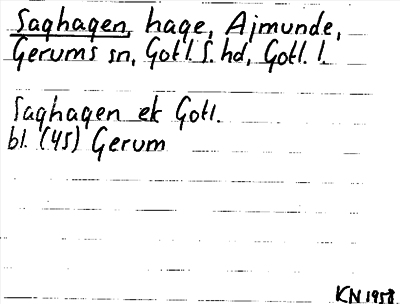 Saghagen, hage, Ajmunde,
Gerums sn, Gotl. S. hd, Gotl. l.
Saghagen ek Gotl.
bl. (45) Gerum
KN 1958